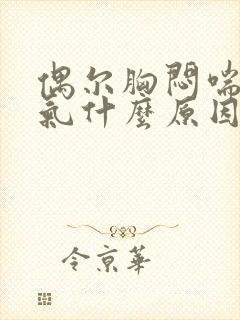 偶尔胸悶喘
氣什麼原因
令京華